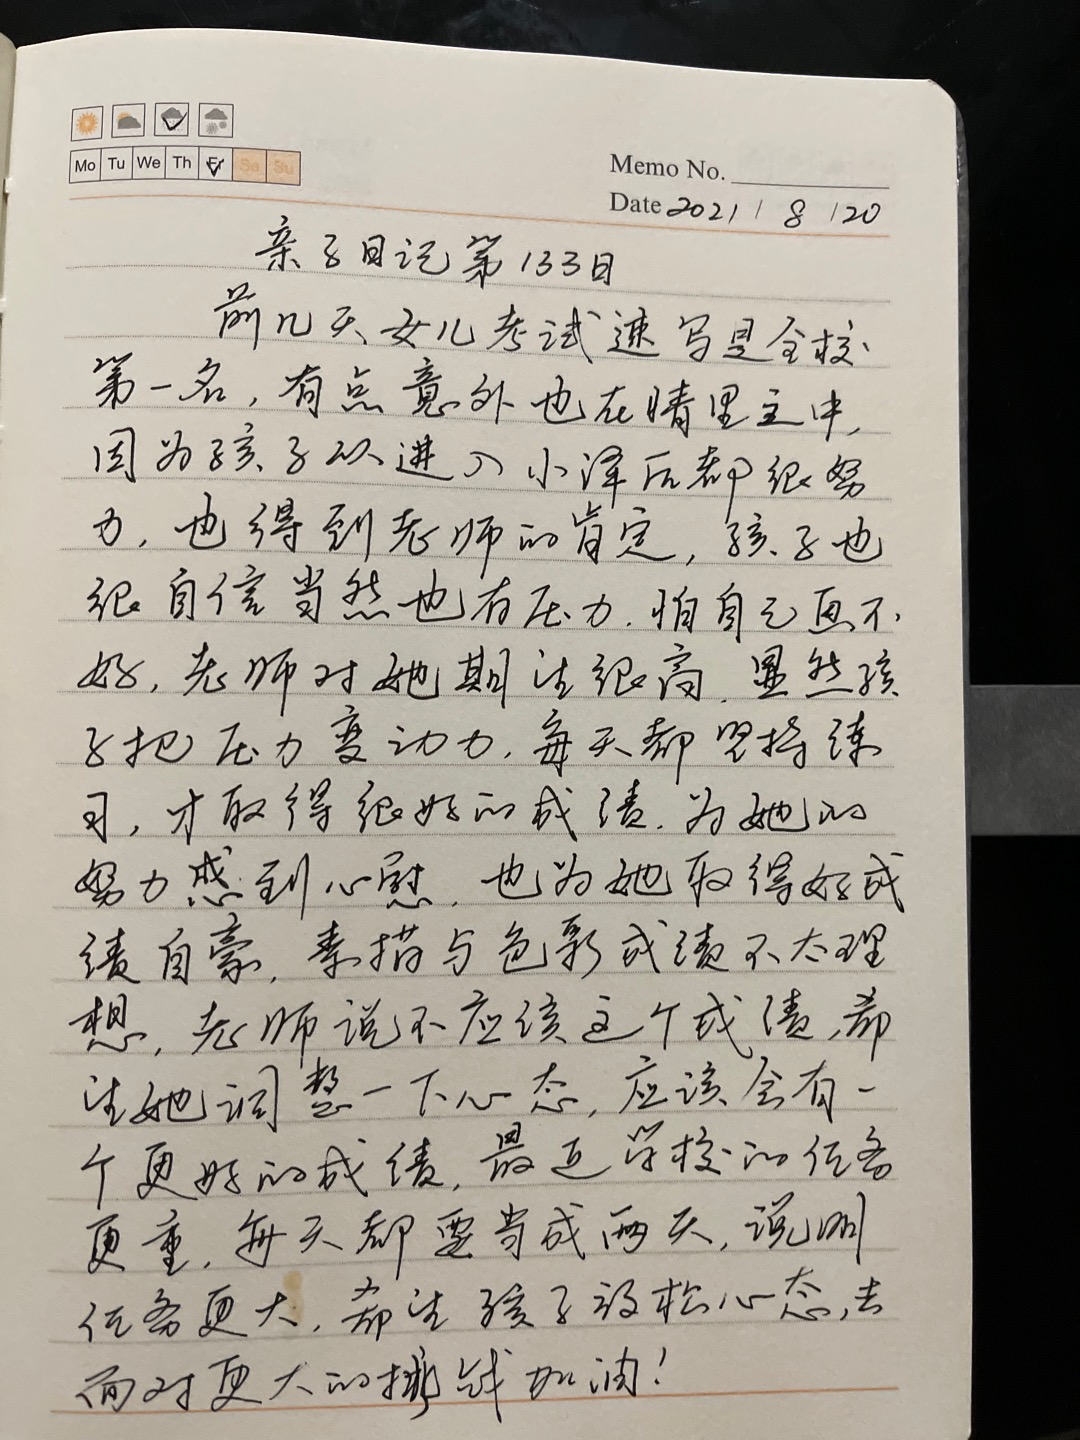 Mo Tu We Th Fr Sa Su
Memo No.
Date 2021 / 8 / 20
亲子日记第133日
前几天女儿考试速写是全校
第一名，有点意外也在晴里之中，
因为孩子从进入小泽后都很努
力，也得到老师的肯定，孩子也
很自信当然也有压力，怕自己画不
好，老师对她期望很高，显然孩
子把压力变动力，每天都坚持练
习，才取得很好的成绩，为她的
努力感到心慰，也为她取得好成
绩自豪，素描与色彩成绩不太理
想，老师说不应该这个成绩，希
望她调整一下心态，应该会有一
个更好的成绩，最近学校的任务
更重，每天都要当成两天，说明
任务更大，希望孩子放松心态，去
面对更大的挑战加油！